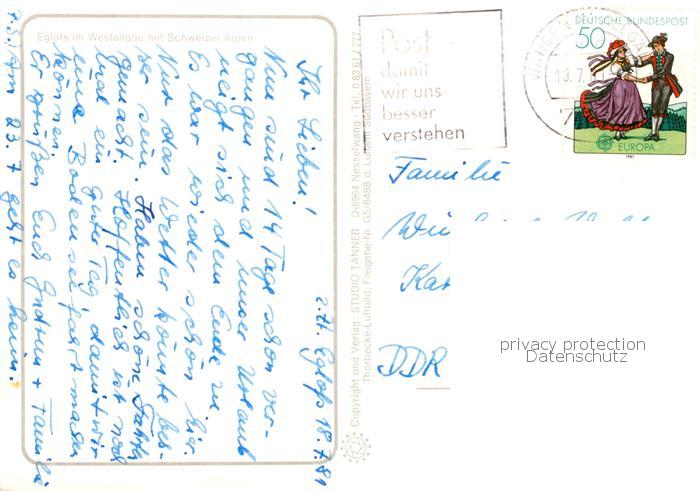 Eglofs im Westallgäu mit Schweizer Alpen
z.Zt. Eglofs 18.7.81
Ihr Lieben!
Nun sind 14 Tage schon ver-
gangen und unser Urlaub
neigt sich dem Ende zu.
Es war wieder schön hier.
Nur das Wetter könnte bes-
ser sein. Haben schöne Fahrten
gemacht. Hoffentlich ist noch
ein guter Tag, damit wir
eine Bodenseefahrt machen
können.
Er grüßen Euch Gudrun + Familie
Am 23.7 geht es heim.
Copyright und Verlag: STUDIO TANNER D-8964 Nesselwang - Tel. 0 83 61 / 777
Thorbecke-Luftbild, Freigabe-Nr. G5/6488 d. Luftamt Südbayern
Post -
damit
wir uns
besser
verstehen
18.7.
DEUTSCHE BUNDESPOST
50
EUROPA
1981
Familie
DDR
privacy protection
Datenschutz